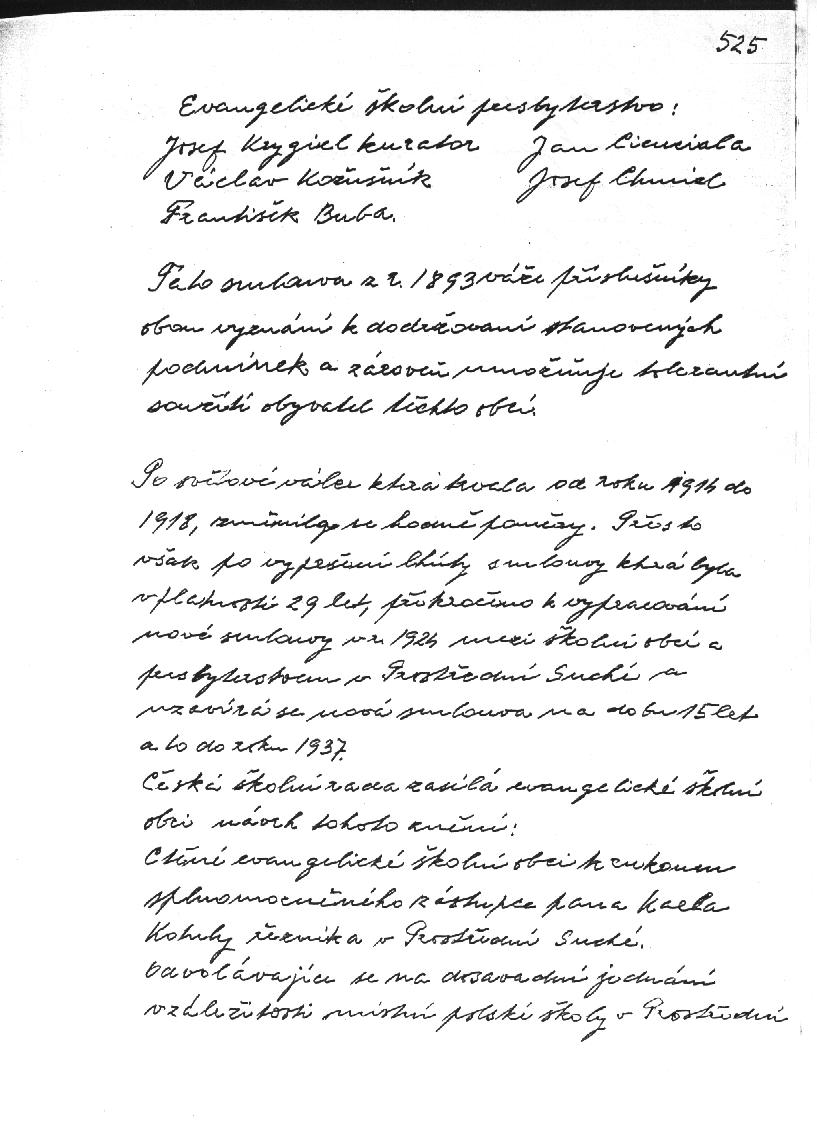 525
Evangelické školní presbyterstvo:
Josef Krygiel kurator Jan Cienciala
Václav Kožušník Josef Chmiel
František Buba.
Tato smlouva z r. 1893 váže příslušníky
obou vyznání k dodržovaní stanovených
podmínek a zároveň umožňuje tolerantní
soužití obyvatel těchto obcí.
Po světové válce která trvala od roku 1914 do
1918, změnily se hodně poměry. Přes to
však po vypršení lhůty smlouvy která byla
v platnosti 29 let, přikročeno k vypracování
nové smlouvy v r. 1924 mezi školní obcí a
presbyterstvem v Prostřední Suché a
uzavírá se nová smlouva na dobu 15 let
a to do roku 1937.
Česká školní rada zasílá evangelické školní
obci návrh tohoto znění:
Ctěné evangelické školní obci k rukoum
splnomocněného zástupce pana Karla
Kotuly řezníka v Prostřední Suché.
Odvolávajíce se na dosavadní jednání
v záležitosti místní polské školy v Prostřední